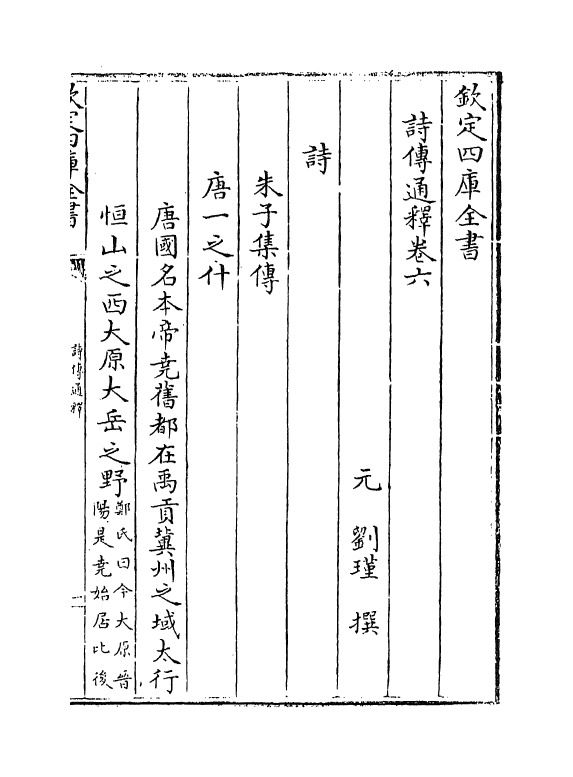 欽定四庫全書
詩傳通釋卷六
元 劉瑾 撰
詩
朱子集傳
唐一之什
唐國名本帝堯舊都在禹貢冀州之域太行
恒山之西大原大岳之野鄭氏曰今大原晉
陽是堯始居比後
欽定四庫全書
詩傳通釋